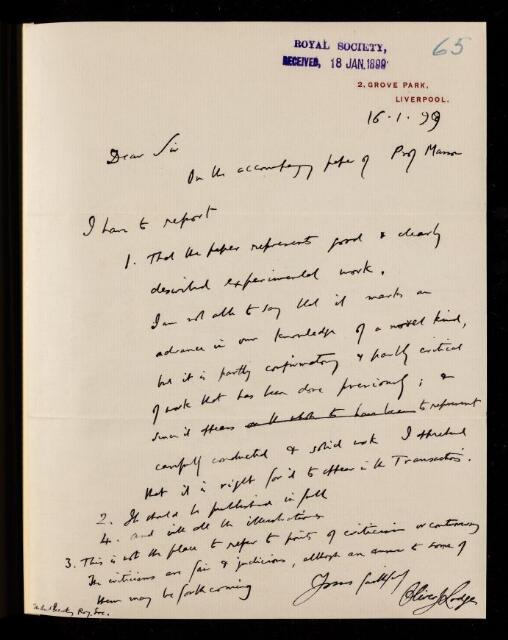 65
ROYAL SOCIETY,
RECEIVED, 18 JAN. 1899
2, GROVE PARK,
LIVERPOOL.
16.1.99
Dear Sir
On the accompanying paper of Prof Masson
I have to report
1. That the paper represents good & clearly
described experimental work.
I am not able to say that it marks an
advance in our knowledge of a novel kind,
but it is partly confirmatory & partly critical
of work that has been done previously; &
since it appears to represent
carefully conducted & solid work I
that it is right for it to appear in the Transactions.
2. It should be published in full
4. and with all the illustrations
3. This is not the place to refer to points of criticism or controversy
The criticisms are fair & judicious, although an answer to some of
them may be forthcoming
Yours faithfully
Oliver J Lodge
Roy. Soc.